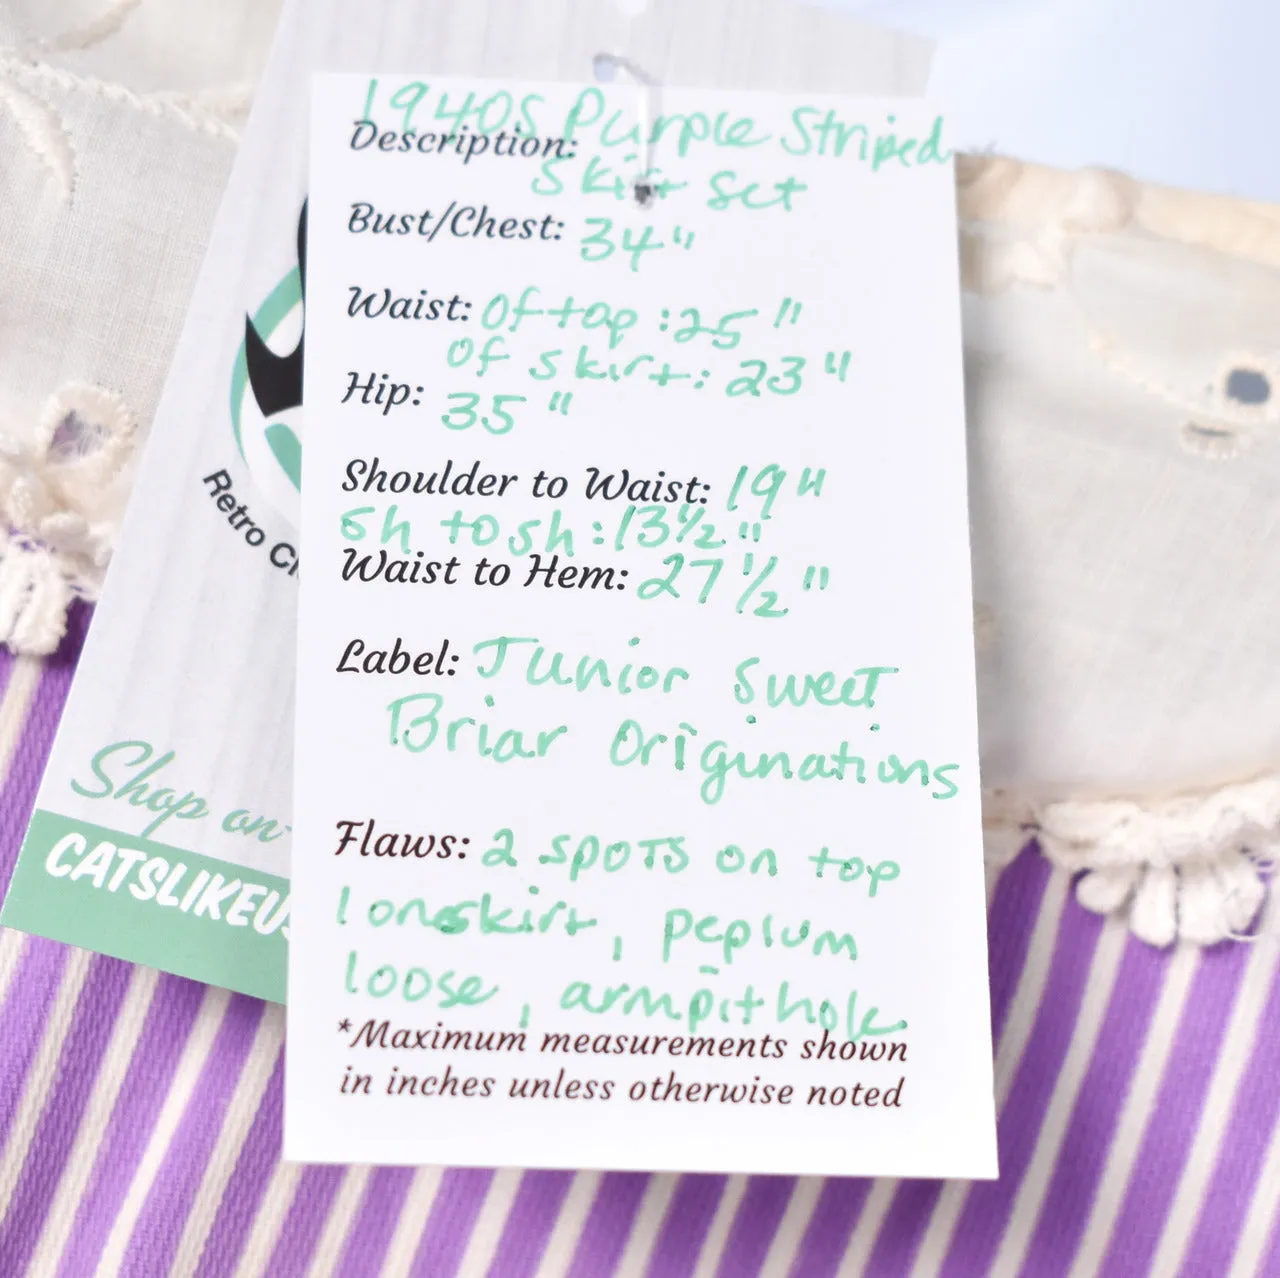 1940s Purple Striped
Description:
Skirt Set
Bust/Chest: 34"
Waist: of top: 25"
of skirt: 23"
Hip: 35"
Shoulder to Waist: 19"
sh to sh: 13½"
Waist to Hem: 27½"
Label: Junior Sweet
Briar Originations
Flaws: 2 spots on top
1 on skirt, peplum
loose, armpit hole
*Maximum measurements shown
in inches unless otherwise noted
Retro
Shop on
CATSLIKEUS